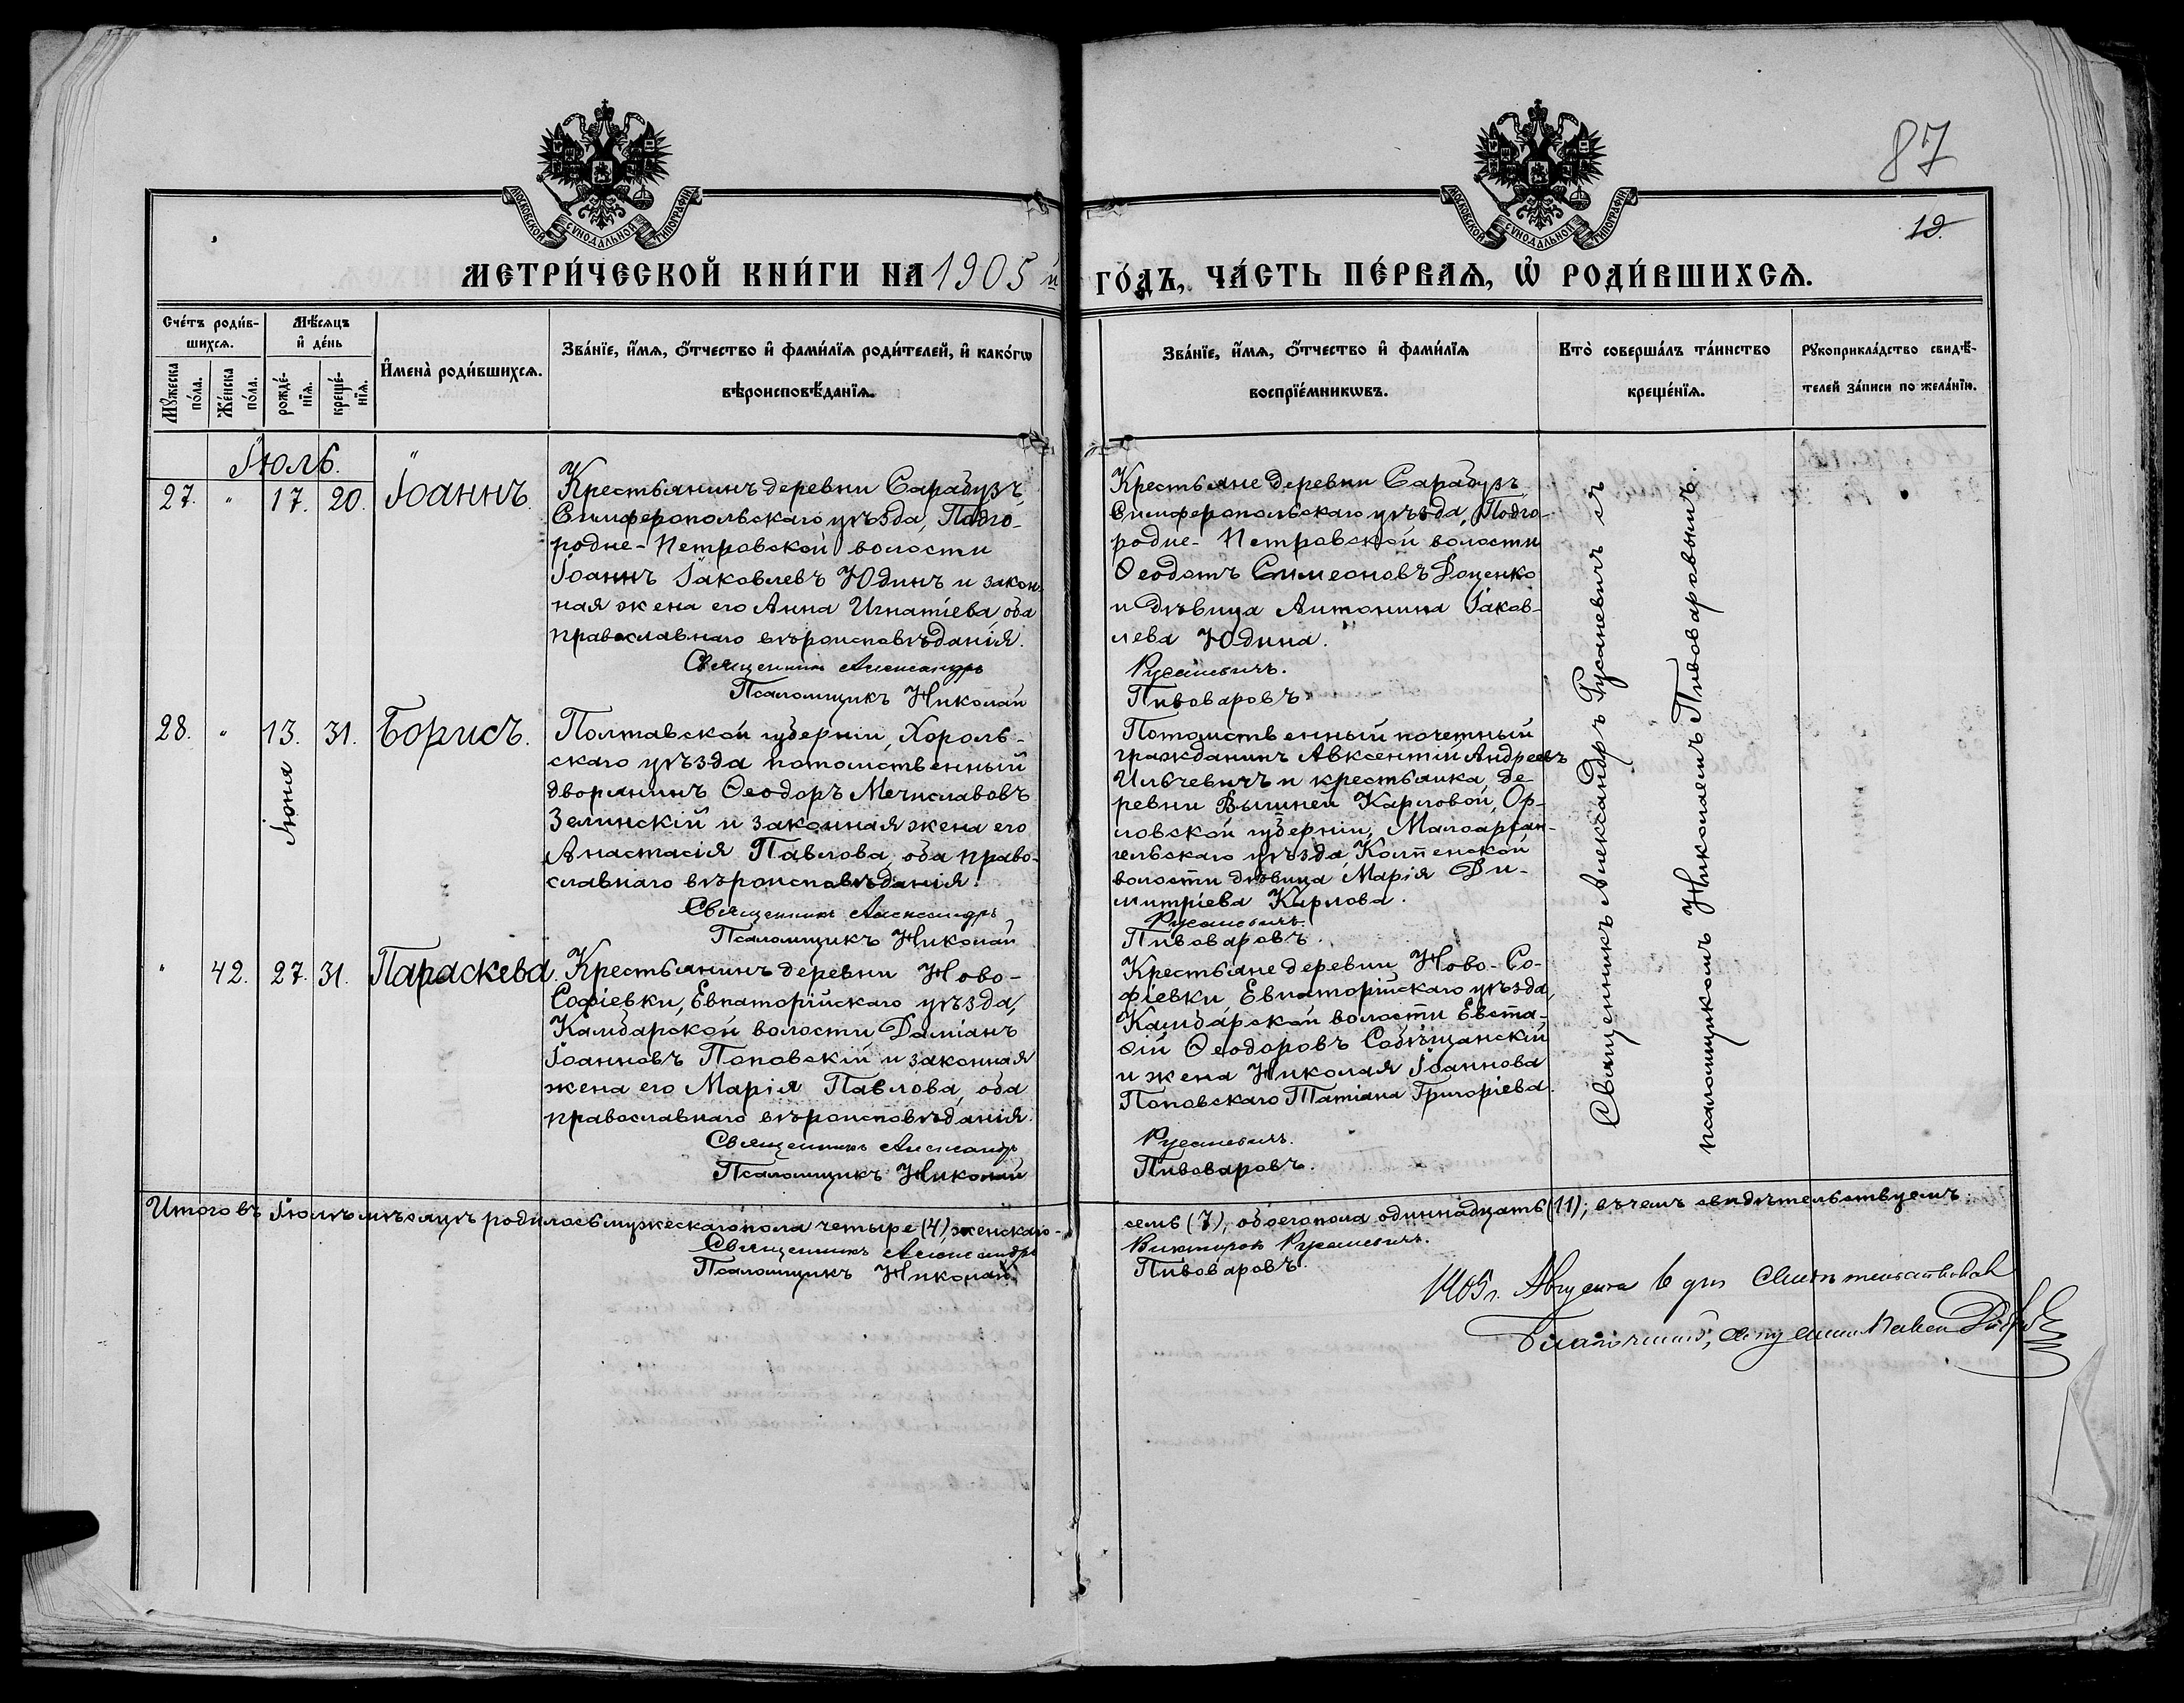 87
12.
МОСКОВСКОЙ СѴНОДАЛЬНОЙ ТИПОГРАФІИ
МОСКОВСКОЙ СѴНОДАЛЬНОЙ ТИПОГРАФІИ
МЕТРИ́ЧЕСКОЙ КНИ́ГИ НА 1905 й
ГО́ДЪ, ЧА́СТЬ ПЕ́РВАѦ, Ѡ҆ РОДИ́ВШИХСѦ.
Сче́тъ роди́в-
шихсѧ.
Мꙋ́жеска по́ла.
Же́нска по́ла.
Мѣ́сѧцъ
и҆ де́нь
рожде́-
нїѧ.
креще́-
нїѧ.
И҆мена̀ роди́вшихсѧ.
Зва́нїе, и҆́мѧ, ѻ҆́тчество и҆ фами́лїѧ роди́телей, и҆ како́гѡ
вѣроисповѣ́данїѧ.
Зва́нїе, и҆́мѧ, ѻ҆́тчество и҆ фами́лїѧ
воспрїе́мникѡвъ.
Кто̀ соверша́лъ та́инство
креще́нїѧ.
Рꙋкоприкла́дство свидѣ́-
телей за́писи по жела́нїю.
Іюль.
27. " 17. 20. Іоаннъ.
Крестьянинъ деревни Сарабузъ,
Симферопольскаго уѣзда, Подго-
родне-Петровской волости
Іоаннъ Іаковлевъ Юдинъ и закон-
ная жена его Анна Игнатіева, оба
православнаго вѣроисповѣданія.
Священникъ Александръ
Псаломщикъ Николай
Крестьяне деревни Сарабузъ
Симферопольскаго уѣзда, Подго-
родне-Петровской волости
Ѳеодотъ Симеоновъ Доценко
и дѣвица Антонина Іаков-
лева Юдина.
Русаневичъ.
Пивоваровъ.
28. " 13. 31. Борисъ.
Іюня
Полтавской губерніи, Хороль-
скаго уѣзда потомственный
дворянинъ Ѳеодоръ Мечиславовъ
Зелинскій и законная жена его
Анастасія Павлова, оба право-
славнаго вѣроисповѣданія.
Священникъ Александръ
Псаломщикъ Николай
Потомственный почетный
гражданинъ Авксентій Андреевъ
Ильчевичъ и крестьянка, де
ревни Вышней Карловой, Ор-
ловской губерніи, Малоархан-
гельскаго уѣзда, Колпенской
волости дѣвица Марія Ди-
митріева Карлова.
Русаневичъ.
Пивоваровъ.
" 42. 27. 31. Параскева.
Крестьянинъ деревни Ново-
Софіевки, Евпаторійскаго уѣзда,
Камбарской волости Даміанъ
Іоанновъ Поповскій и законная
жена его Марія Павлова, оба
православнаго вѣроисповѣданія.
Священникъ Александръ
Псаломщикъ Николай
Крестьяне деревни Ново-Со-
фіевки, Евпаторійскаго уѣзда,
Камбарской волости Евста-
ѳій Ѳеодоровъ Собѣщанскій
и жена Николая Іоаннова
Поповскаго Татіана Григоріева.
Русаневичъ.
Пивоваровъ.
Священникъ Александръ Русаневичъ съ
псаломщикомъ Николаемъ Пивоваровымъ.
Итого въ Іюлѣ мѣсяцѣ родилось мужескаго пола четыре (4), женскаго -
семь (7), обоего пола одиннадцать (11); въ чемъ свидѣтельствуемъ:
Священникъ Александръ
Псаломщикъ Николай
Викторовъ Русаневичъ.
Пивоваровъ.
1905 г. Августа 6 дня Свидѣтельствовалъ
Благочинный, Священникъ Павелъ